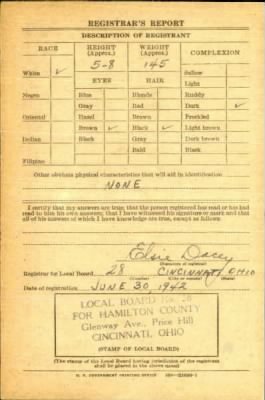 REGISTRAR'S REPORT
DESCRIPTION OF REGISTRANT
RACE HEIGHT (Approx.) WEIGHT (Approx.) COMPLEXION
White ✓ 5-8 145 Sallow
Light
EYES HAIR Ruddy
Negro Blue Blonde Dark ✓
Gray Red Freckled
Oriental Hazel Brown Light brown
Brown ✓ Black ✓ Dark brown
Indian Black Gray Black
Bald
Filipino
Other obvious physical characteristics that will aid in identification
NONE
I certify that my answers are true; that the person registered has read or has had
read to him his own answers; that I have witnessed his signature or mark and that
all of his answers of which I have knowledge are true, except as follows:
Elsie Dacey
(Signature of registrar)
Registrar for Local Board 28 CINCINNATI OHIO
(Number) (City or county) (State)
Date of registration JUNE 30, 1942
LOCAL BOARD No. 28
FOR HAMILTON COUNTY
Glenway Ave., Price Hill
CINCINNATI, OHIO
(STAMP OF LOCAL BOARD)
(The stamp of the Local Board having jurisdiction of the registrant
shall be placed in the above space)
U. S. GOVERNMENT PRINTING OFFICE